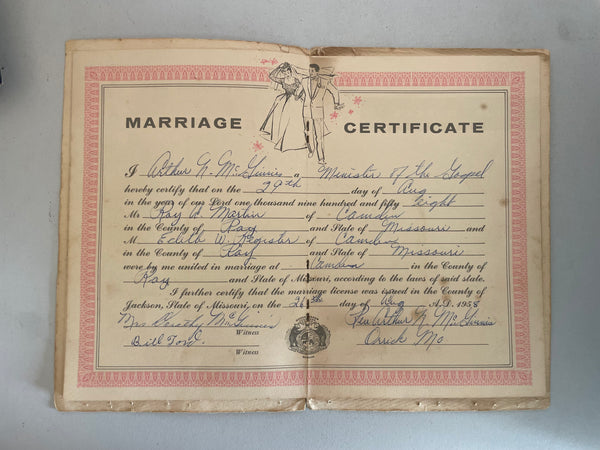 MARRIAGE CERTIFICATE
I Arthur N. McGinnis a Minister of the Gospel
hereby certify that on the 29th day of Aug
in the year of our Lord one thousand nine hundred and fifty Eight
Mr Ray A. Martin of Camden
in the County of Ray and State of Missouri and
M Edith W. Register of Camden
in the County of Ray and State of Missouri
were by me united in marriage at Camden in the County of
Ray and State of Missouri, according to the laws of said state.
I further certify that the marriage license was issued in the County of
Jackson, State of Missouri, on the 26th day of Aug A.D. 1958
Mrs Dorothy McGinnis Rev Arthur N. McGinnis
Witness
Bill Orrick Mo
Witness